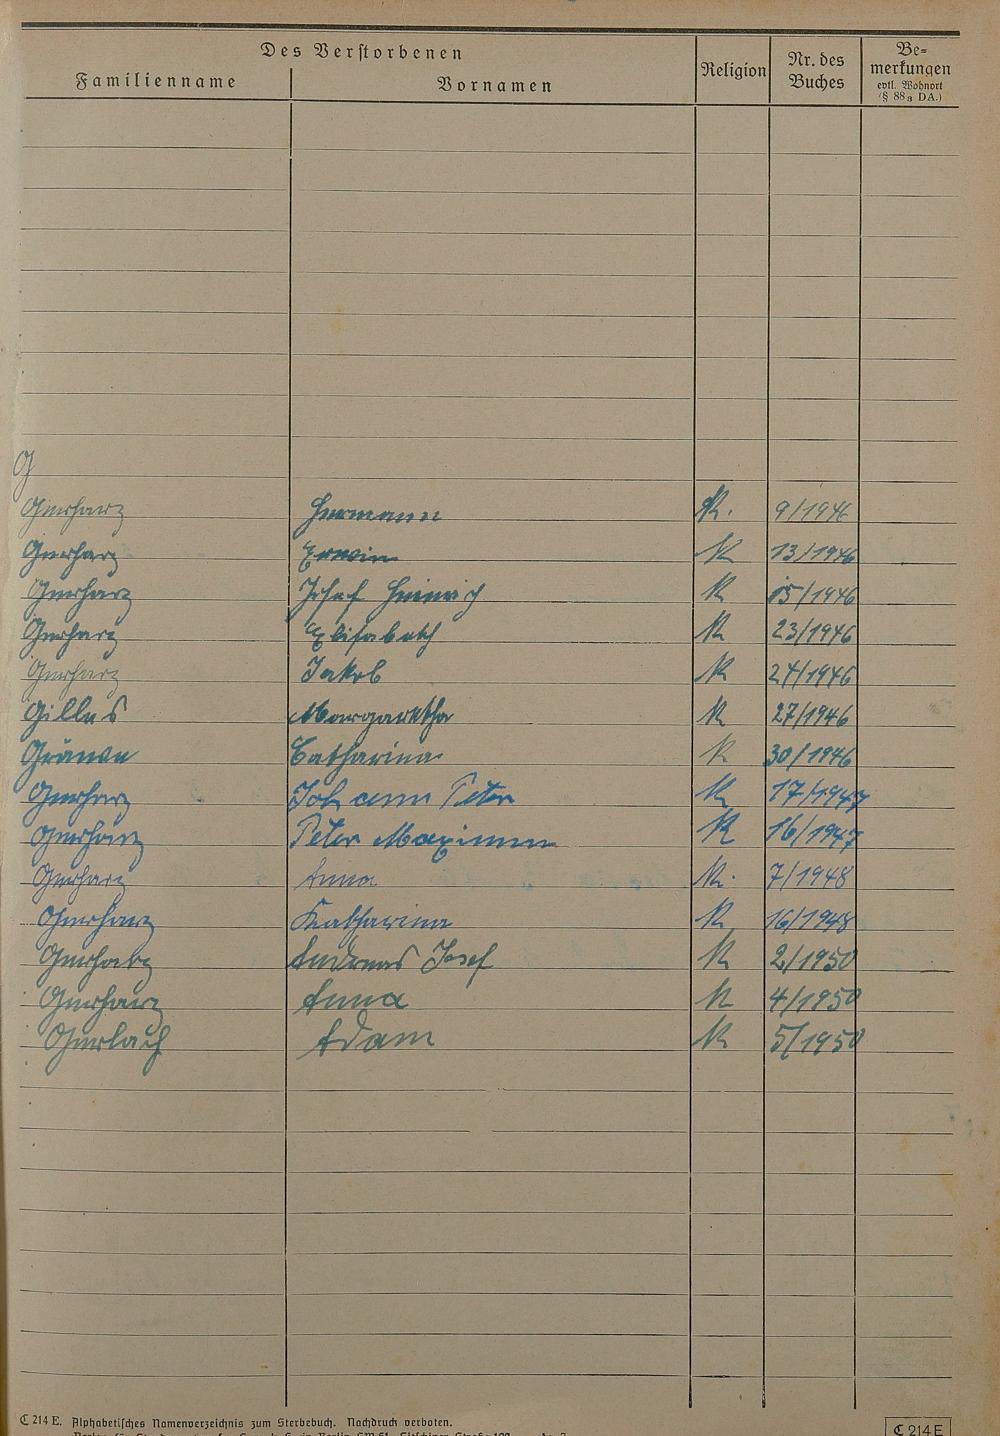 Des Verstorbenen
Familienname Vornamen Religion Nr. des Buches Be-merkungen evtl. Wohnort (§ 88₃ DA.)
G
Gerharz Hermann K. 9/1946
Gerharz Erwin K 13/1946
Gerharz Josef Heinrich K 15/1946
Gerharz Elisabeth K 23/1946
Gerharz Jakob K 24/1946
Gilles Margaretha K 27/1946
Catharina K 30/1946
Gerharz Johann Peter K 17/1947
Gerharz Peter K 16/1947
Gerharz Anna K. 7/1948
Gerharz Katharina K 16/1948
Gerharz Andreas Josef K 2/1950
Gerharz Anna K 4/1950
Gerlach Adam K 5/1950
C 214 E. Alphabetisches Namenverzeichnis zum Sterbebuch. Nachdruck verboten.
C 214 E